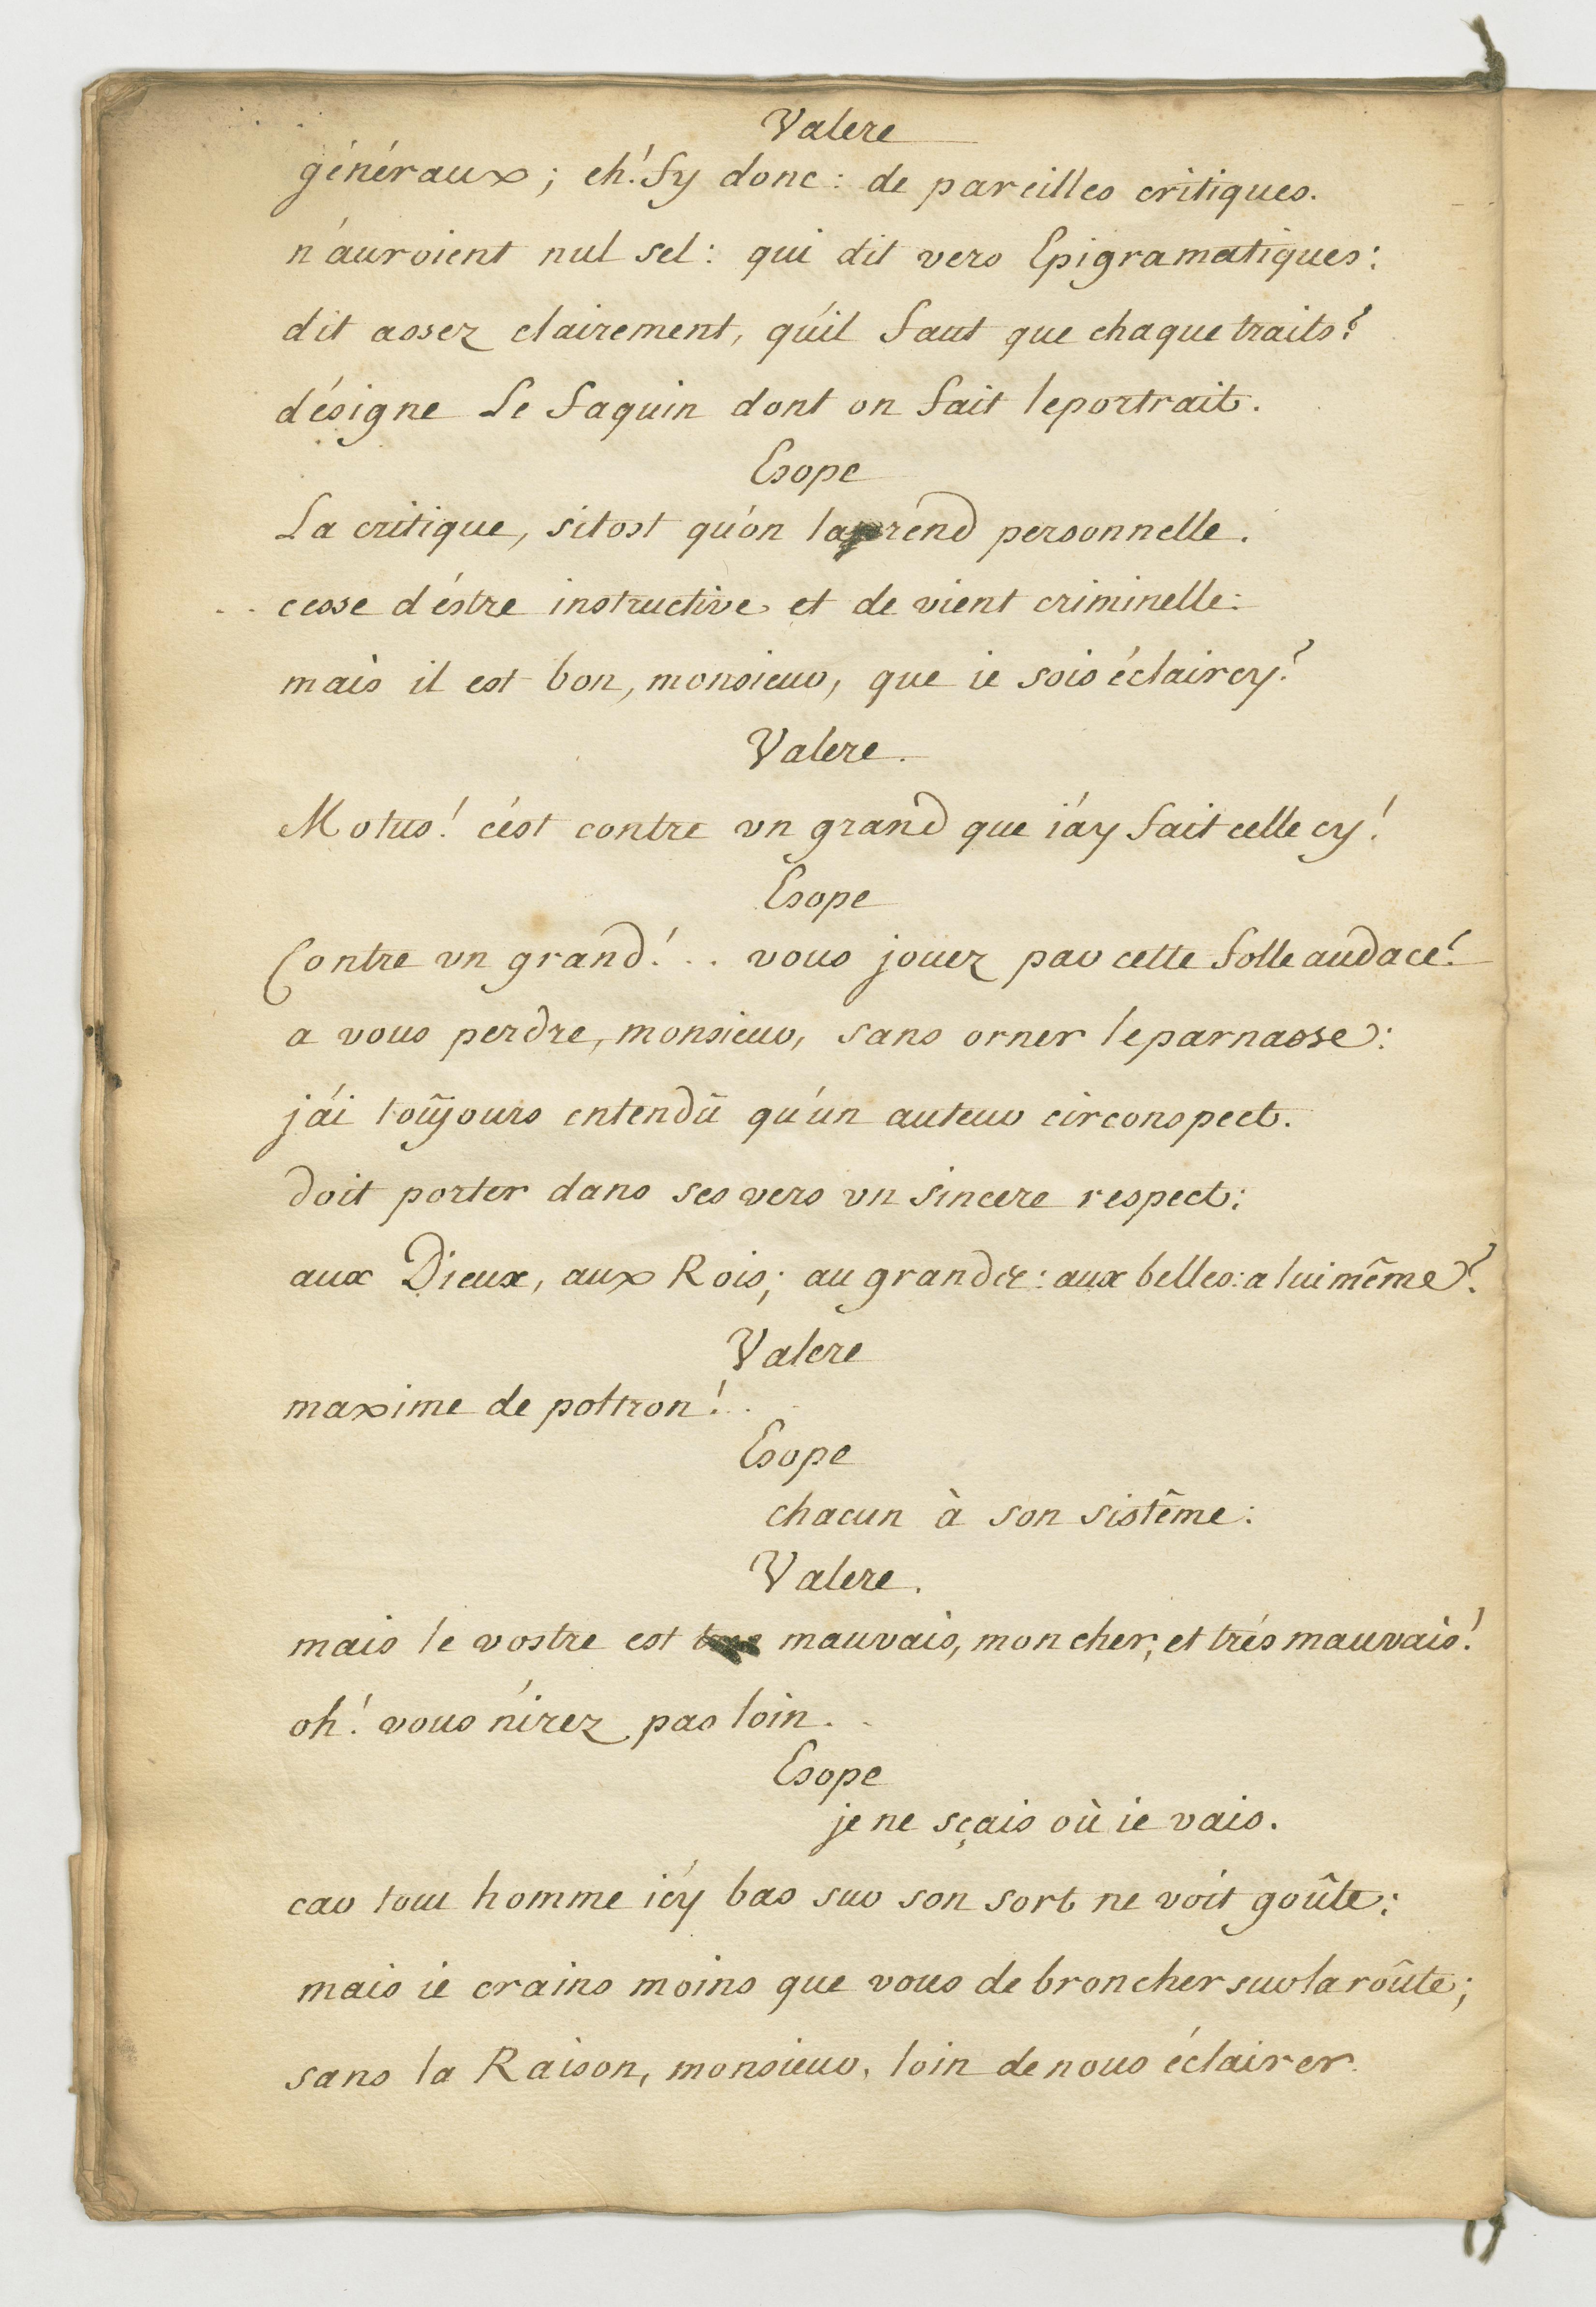 Valere
généraux; eh! fy donc: de pareilles critiques.
n'auroient nul sel: qui dit vers Epigramatiques:
dit assez clairement, qu'il faut que chaque traits?
désigne le faquin dont on fait leportrait.
Esope
La critique, sitost qu'on la rend personnelle.
cesse d'éstre instructive et de vient criminelle:
mais il est bon, monsieur, que ie sois éclaircy?
Valere.
Motus! c'est contre vn grand que i'ay fait celle cy!
Esope
Contre vn grand!.. vous jouez par cette folle audace?
a vous perdre, monsieur, sans orner leparnasse:
j'ai toûjours entendû qu'un auteur circonspect.
doit porter dans ses vers vn sincere respect:
aux Dieux, aux Rois; au grandez: aux belles: a lui même?
Valere
maxime de poltron!..
Esope
chacun à son sistême:
Valere.
mais le vostre est mauvais, mon cher, et trés mauvais!
oh! vous n'irez pas loin..
Esope
je ne sçais où ie vais.
car tout homme icy bas sur son sort ne voit goûte:
mais ie crains moins que vous de broncher sur la roûte;
sans la Raison, monsieur, loin de nous éclairer.